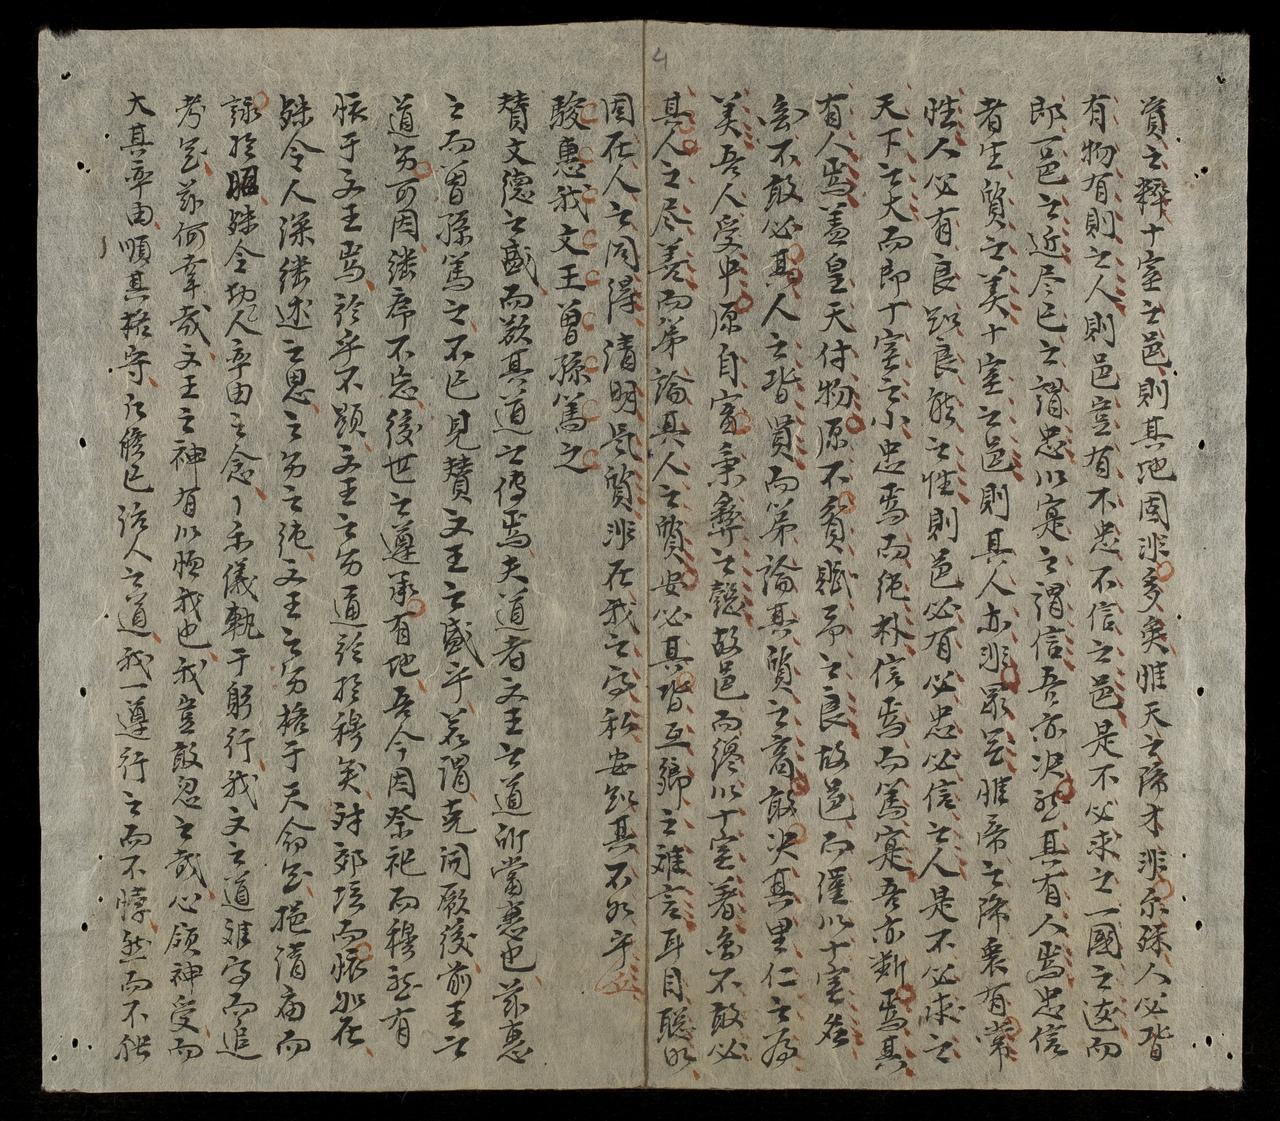 4
資之粹十室之邑則其地固非多矣惟天之降才非尔殊人必皆
有物有則之人則邑豈有不忠不信之邑是不必求之一國之遠而
即一邑之近尽己之謂忠以寔之謂信吾亦决然其有人焉忠信
者生質之美十室之邑則其人亦非衆矣惟帝之降衷有常
性人必有良知良能之性則邑必有必忠必信之人是不必求之
天下之大而即十室之小忠焉而純朴信焉而篤寔吾亦断焉其
有人焉盖皇天付物原不貧賦予之良故邑而僅以十室差
吾不敢必其人之皆異而第論其質之啇敢决其里仁之為
美吾人受中原自富秉彝之懿故邑而終以十室著吾不敢必
其人之尽善而第論其人之質安必其皆互鄉之难言耳目聡明
固在人之同得清明氣質非在我之守私安知其不如乎
駿惠我文王曾孫篤之
賛文德之盛而欲其道之傳焉夫道者文王之道所當惠也兹惠
之而曾孫篤之不已見賛文王之盛乎若謂克開厥後前王之
道另可因継序不忘後世之遵承有地吾今因祭祀而穆然有
懐于文王焉於乎不顕文王之另通於於穆矣対郊坛而懐如在
殊令人深継述之思之另之純文王之另格于天命矣挹清庙而
詠於昭殊令切人率由之念乀示儀執于躬行我文之道难守而追
考矣兹何幸哉文王之神有以恤我也我豈敢忽之哉心領神受而
大其率由順其格守之修已治人之道我一遵行之而不悖然而不能